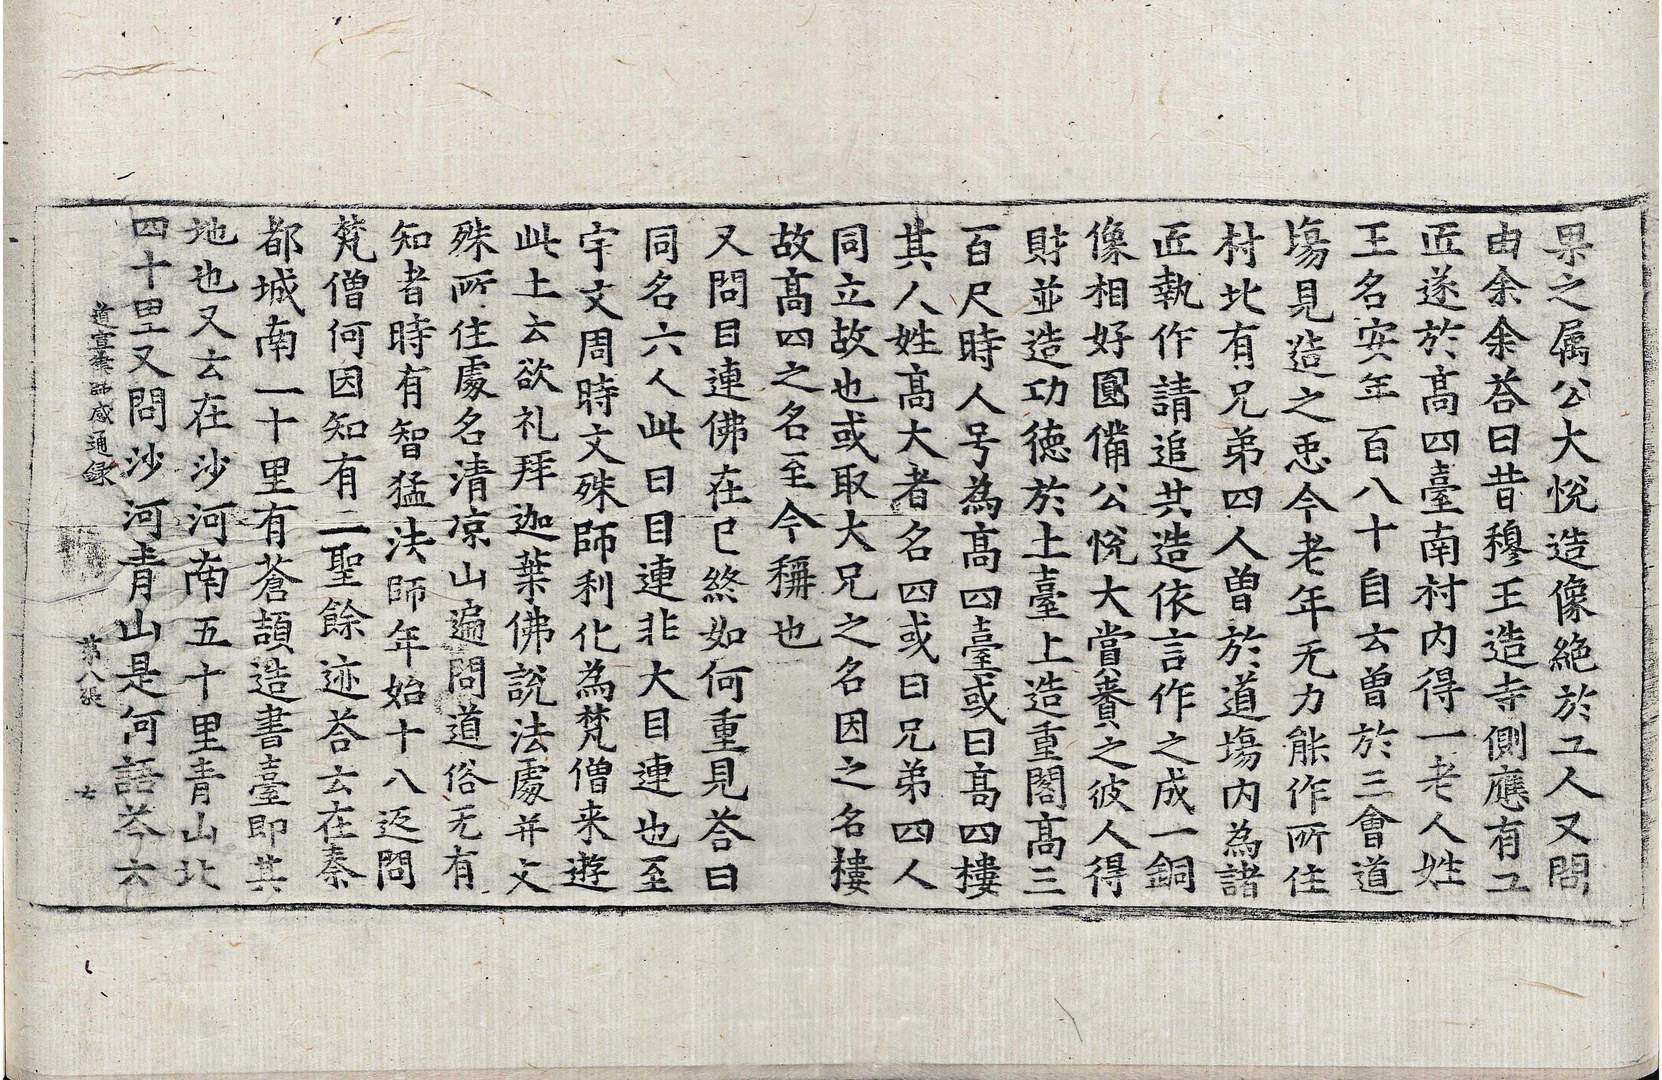 果之属公大悅造像絶於工人又問
由余余荅曰昔穆王造寺側應有工
匠遂於髙四臺南村内得一老人姓
王名安年百八十自云曾於三會道
塲見造之恵今老年无力能作所住
村北有兄弟四人曾於道塲内為諸
匠執作請追共造依言作之成一銅
像相好圓備公悅大賞賚之彼人得
財並造功德於上臺上造重閣髙三
百尺時人号為髙四臺或曰髙四樓
其人姓髙大者名四或曰兄弟四人
同立故也或取大兄之名因之名樓
故髙四之名至今稱也
又問目連佛在已終如何重見荅曰
同名六人此曰目連非大目連也至
宇文周時文殊師利化為梵僧来遊
此土云欲礼拜迦葉佛說法處并文
殊所住處名清凉山遍問道俗无有
知者時有智猛法師年始十八返問
梵僧何因知有二聖餘迹荅云在秦
都城南一十里有蒼頡造書臺即其
地也又云在沙河南五十里青山北
四十里又問沙河青山是何語荅云
道宣律師感通録 第八張 七